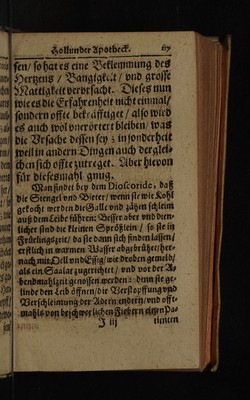 Hollunder Apotheck.
sen / so hat es eine Beklemmung des
Hertzens / Bangigkeit / und grosse
Mattigkeit verursacht. Dieses nun
wie es die Erfahrenheit nicht einmal /
sondern offte bekräfftiget / also wird
es auch wol unerörtert bleiben / was
die Ursache dessen sey / insonderheit
weil in andern Dingen auch derglei-
chen sich offt zutreget. Aber hievon
für diesesmahl gnug.
Man findet bey dem Dioscoride, daß
die Stengel und Bletter / wenn sie wie Kohl
gekocht werden die Galle und zähen schleim
auß dem Leibe führen: Besser aber und dien-
licher sind die kleinen Sprößlein / so sie in
Frülingszeit / da sie dann sich finden lassen /
erstlich in warmen Wasser abgebrühet / her-
nach mit Oell und Essig / wie droben gemeld /
als ein Saalat zugerichtet / und vor der A-
bendmahlzeit genossen werden: denn sie ge-
linde den Leib öffnen / die Verstopffung und
Verschleimung der Adern endern / und offt-
mahls von beschwerlichen Fiebern einen Pa-
J iij
tienten